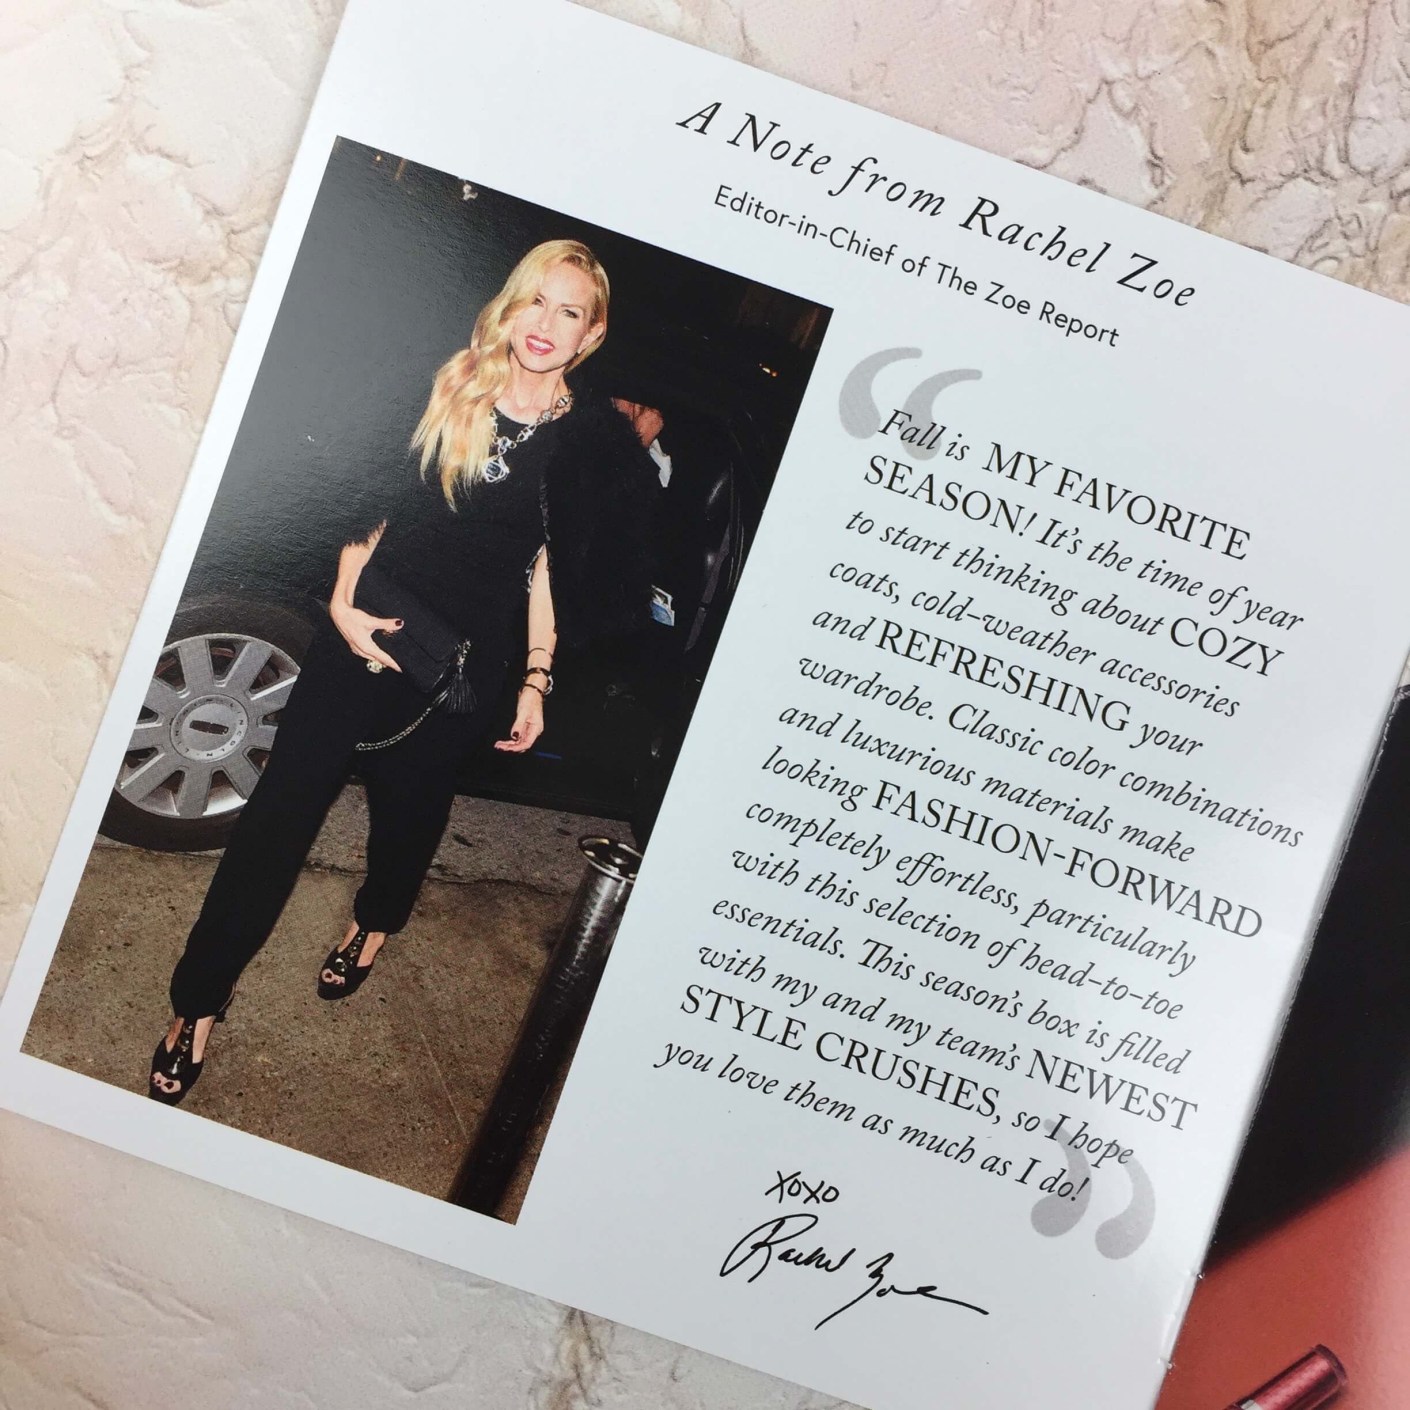 A Note from Rachel Zoe
Editor-in-Chief of The Zoe Report
“Fall is MY FAVORITE
SEASON! It’s the time of year
to start thinking about COZY
coats, cold-weather accessories
and REFRESHING your
wardrobe. Classic color combinations
and luxurious materials make
looking FASHION-FORWARD
completely effortless, particularly
with this selection of head-to-toe
essentials. This season’s box is filled
with my and my team’s NEWEST
STYLE CRUSHES, so I hope
you love them as much as I do!”
XOXO
Rachel Zoe
LINCOLN